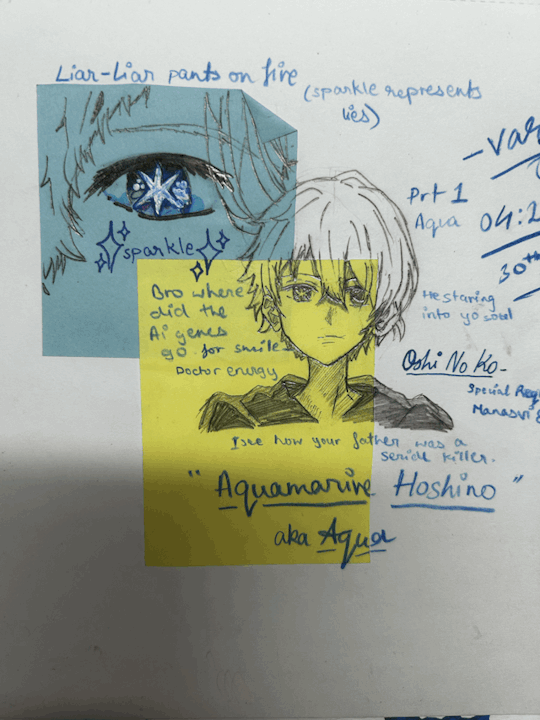 Liar-Liar pants on fire
(sparkle represents
lies)
Prt 1
Aqua
30th
sparkle
Bro where
did the
Ai genes
go for smile
Doctor energy
He staring
into yo soul
Oshi No Ko-
Special
Manasvi
I see how your father was a
serial killer.
"Aquamarine Hoshino"
aka Aqua